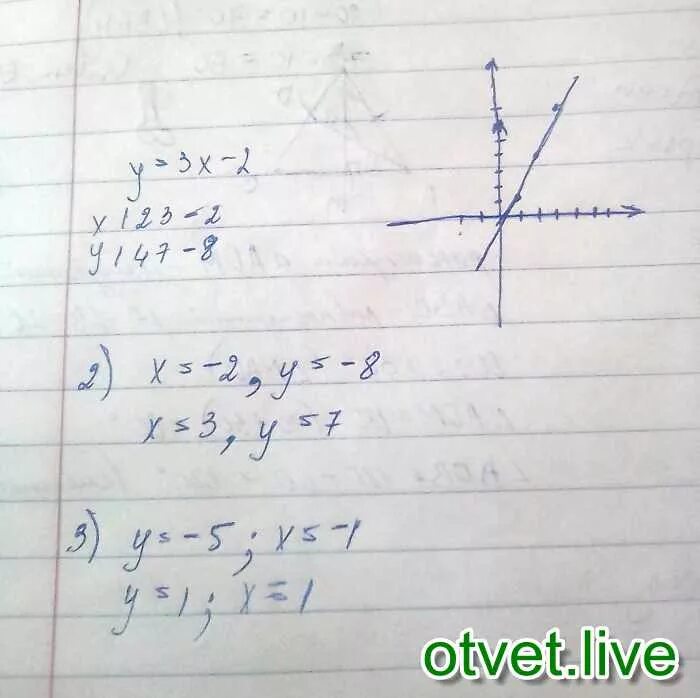 y = 3x - 2
x 1 2 3 - 2
y 1 4 7 - 8
2) x = -2, y = -8
x = 3, y = 7
3) y = -5; x = -1
y = 1; x = 1
otvet.live